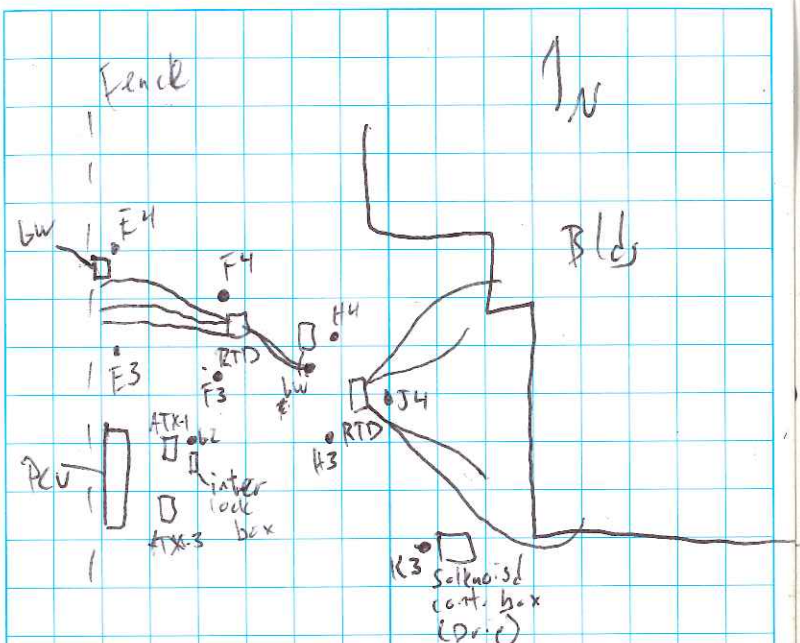 Fence
N
Bldg
GW
E4
F4
H4
RTD
E3
F3
GW
J4
RTD
H3
ATX-1
G2
PCU
inter
lock
box
ATX-3
K3
Solenoid
cont. box
(Drip)